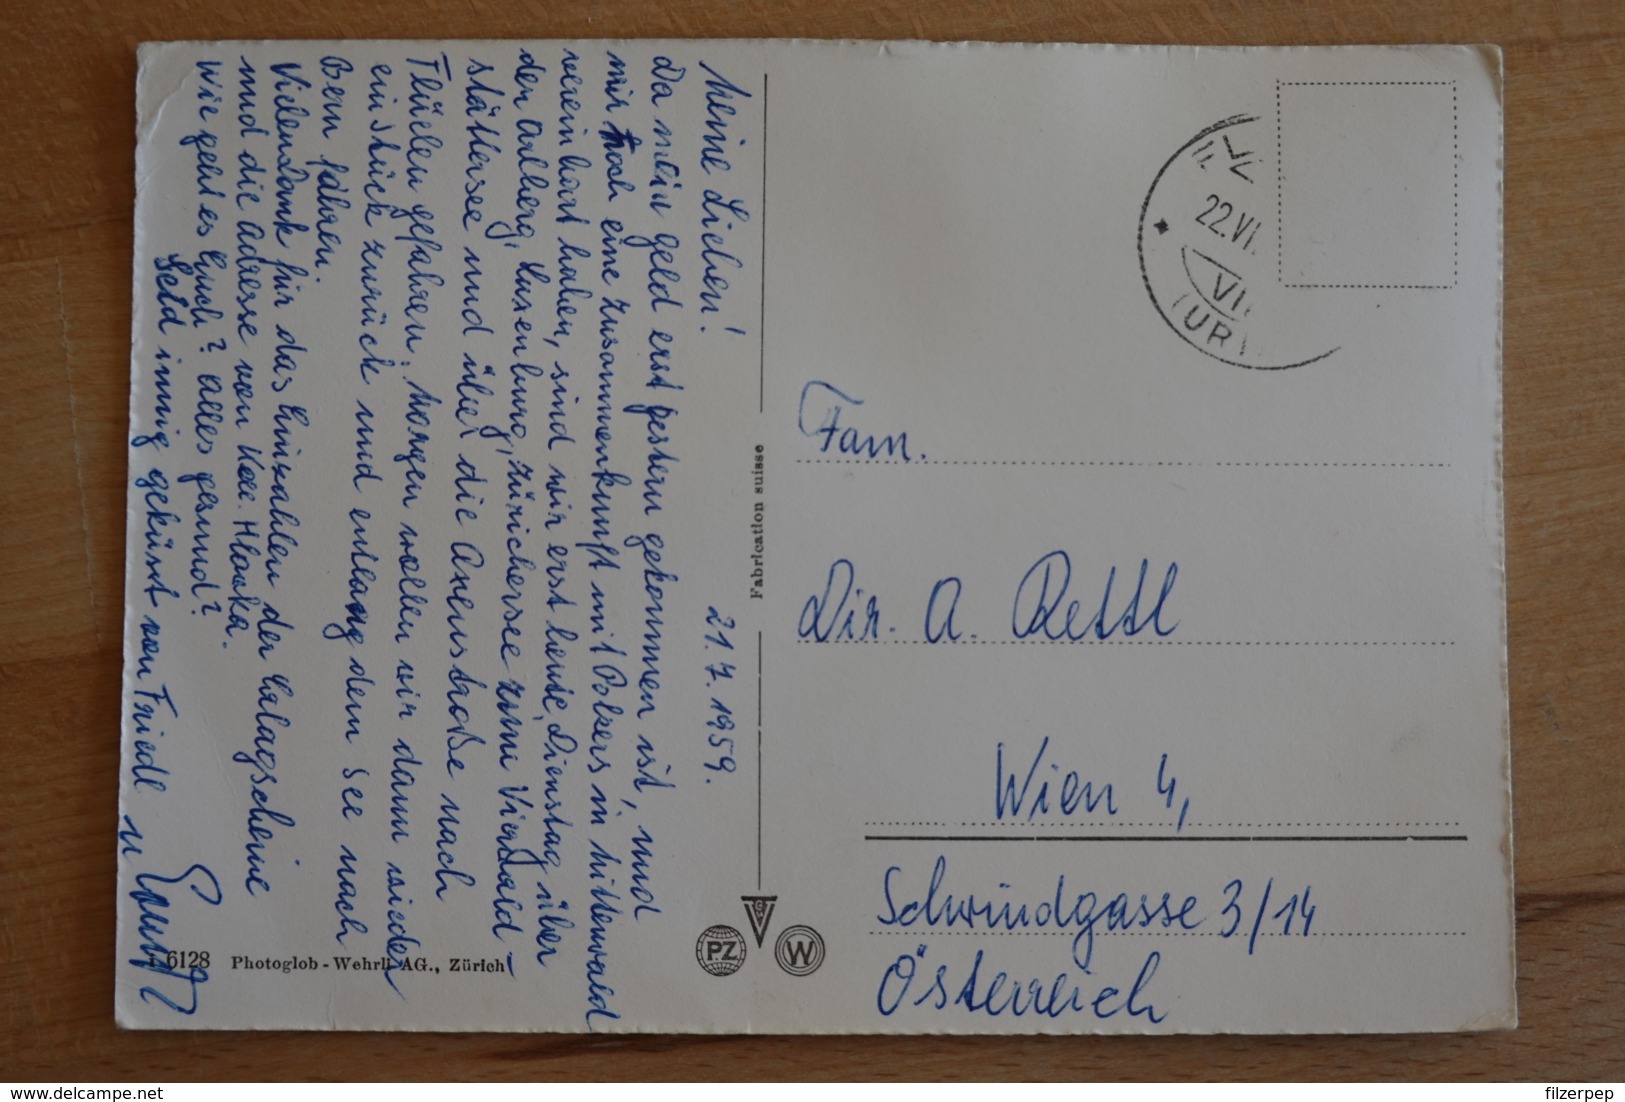 21. 7. 1959.
Meine Lieben!
Da mein Geld erst gestern gekommen ist, und
wir noch eine Zusammenkunft mit Polzers in Mittenwald
vereinbart haben, sind wir erst heute, Dienstag über
den Arlberg, Luxenburg, Zürichersee zum Vierwald-
stättersee und über die Axenstraße nach
Flüelen gefahren. Morgen wollen wir dann wieder
ein Stück zurück und entlang dem See nach
Bern fahren.
Vielen Dank für das Einzahlen der Erlagscheine
und die Adresse von Koll. Hlavka.
Wie geht es Euch? Alles gesund?
Seid innig geküsst von Friedl
u
6128 Photoglob-Wehrli AG., Zürich
Fabrication suisse
PZ
W
22.VI
(URI
Fam.
Dir. A. Rettl
Wien 4,
Schwindgasse 3/14
Österreich
filzerpep